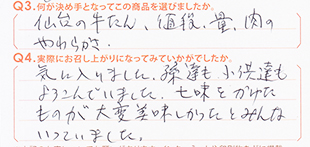 Q3.何が決め手となってこの商品を選びましたか。
仙台の牛たん、値段、量、肉の
やわらかさ.
Q4.実際にお召し上がりになってみていかがでしたか。
気に入りました。孫達も子供達も
よろこんでいました。七味をかけた
ものが大変美味しかったとみんな
いっていました。